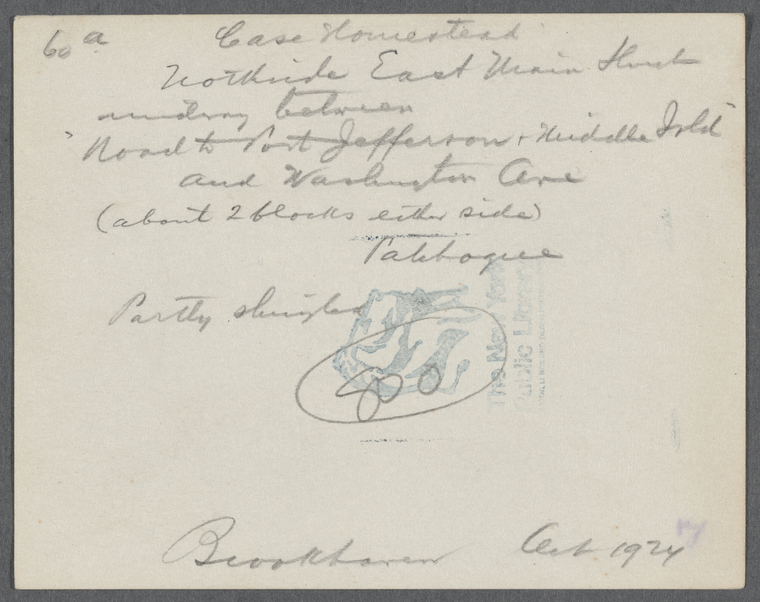 60 a Case Homestead
Northside East Main Street
midway between
"Road to Port Jefferson + Middle Isld"
and Washington Ave
(about 2 blocks either side)
Patchogue
Partly shingled
The New York
Public Library
Brookhaven Oct. 1924